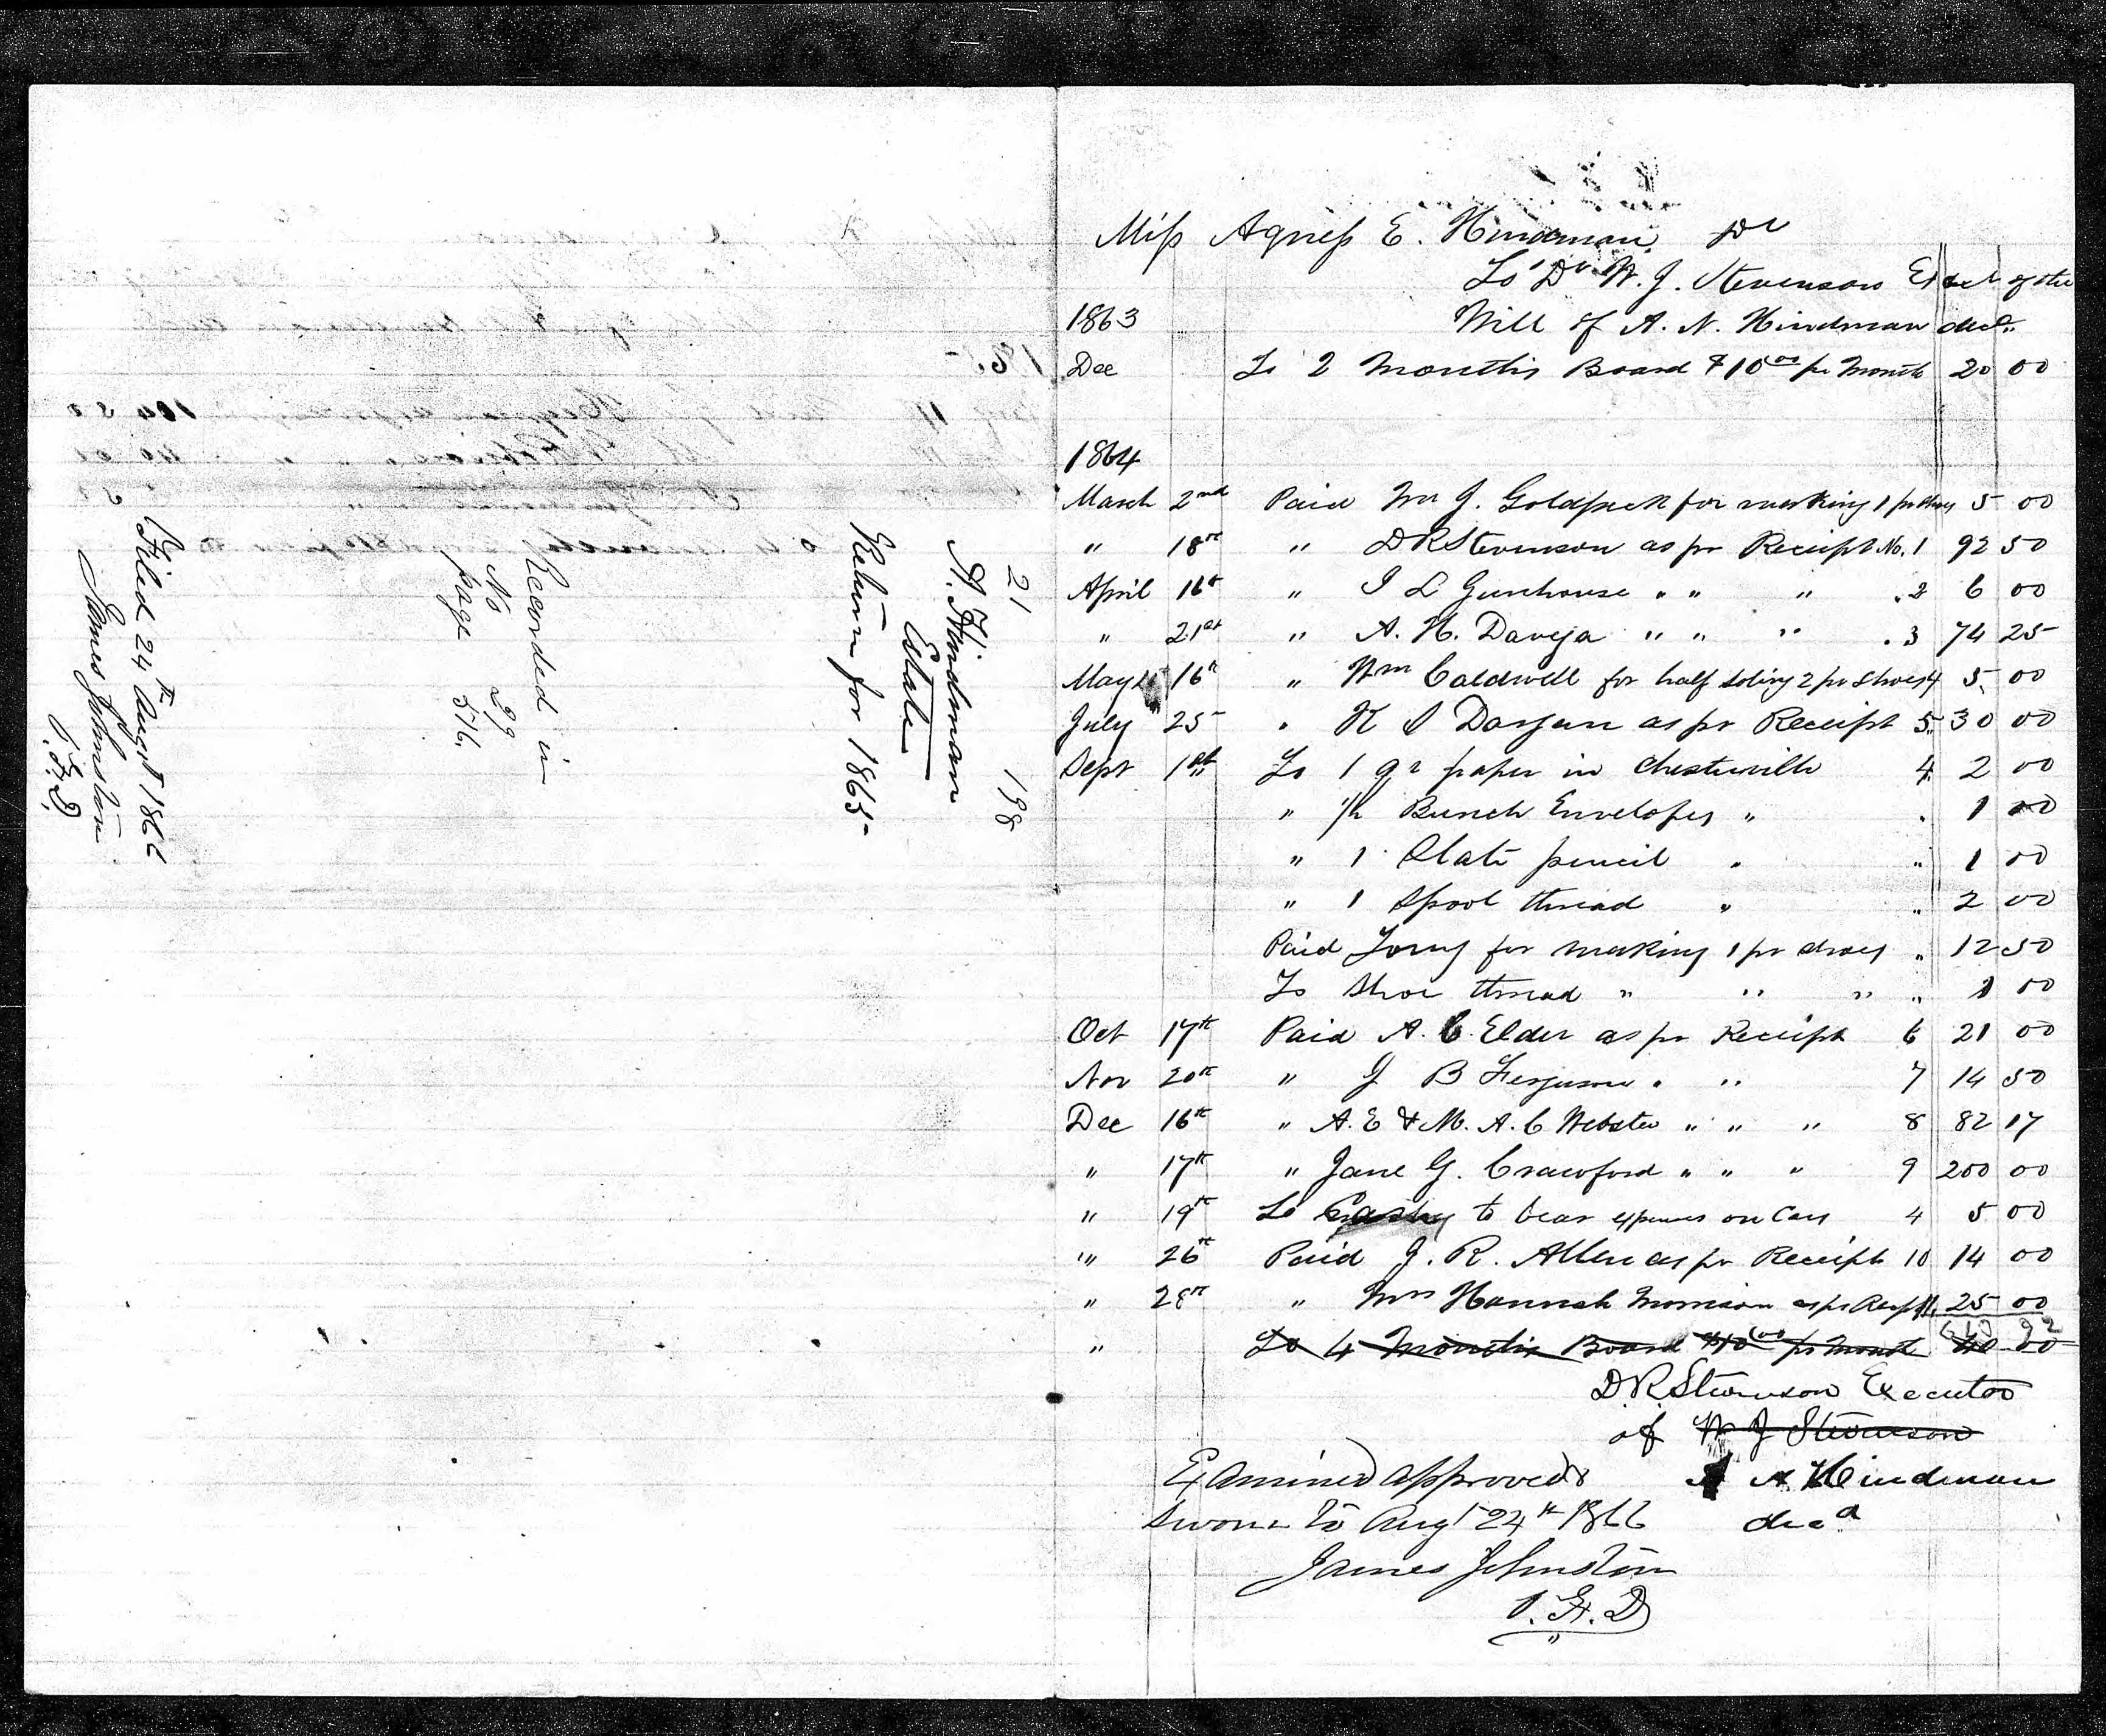 21 198
A. F. Hindman
Estate
Return for 1865
Recorded in
No 29
page 516.
Filed 24th August 1866
James Johnston
O.F.D.
Miss Agness E. Hindman Dr
To Dr W. J. Stevenson Exect of the
1863 Will of A. N. Hindman decd.
Dec To 2 Months Board $10 00 pr Month 20 00
1864
March 2nd Paid Wm J. for making 1 pr Shoes 5 00
" 18th " D R Stevenson as pr Receipt No. 1 92 50
April 16th " J L Gunhouse " " " " 2 6 00
" 21st " A. H. Davega " " " " 3 74 25
May 16th " Wm Caldwell for half soling 2 pr Shoes 4 5 00
July 25 " K S Dargan as pr Receipt 5 30 00
Sept 1st To 1 qr paper in Chesterville 4 2 00
" 1/2 Bunch Envelopes " " 1 00
" 1 Slate pencil " " 1 00
" 1 Spool thread " " 2 00
Paid for making 1 pr shoes " 12 50
To Shoe thread " " " " 1 00
Oct 17th Paid A. C. Elder as pr Receipt 6 21 00
Nov 20th " J B Ferguson " " 7 14 50
Dec 16th " A. E & M. A. C Webster " " " 8 82 17
" 17th " Jane G. Crawford " " " 9 200 00
" 19th To Cash to bear expenses on Cars 4 5 00
" 26th Paid J. R. Allen as pr Receipt 10 14 00
" 28th " Mrs Hannah Morrison as pr Recpt 11 25 00
92
" To 4 Months Board $10 00 pr Month 40 00
D. R. Stevenson Executor
of W J Stevenson
Examined approved & A A Hindman
Sworn to Aug 24th 1866 decd
James Johnston
O.F.D